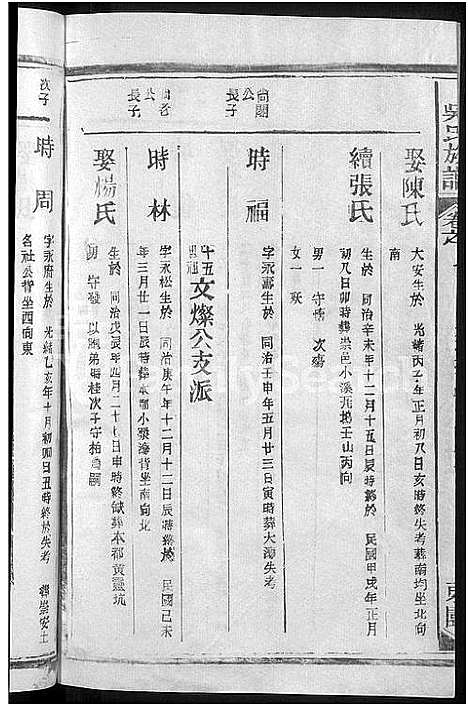 吳氏族譜
娶陳氏
大安生於 光緒丙子年正月初八日亥時終失考葬南均坐北向
南
續張氏
生於 同治辛未年十二月十五日辰時終於 民國甲戌年正月
初八日卯時葬崇邑小溪 壬山丙向
男一 守 次殤
女一 
尙閣
公
長子
時福
字永壽生於 同治壬申年五月廿三日寅時葬大 失考
十五
世祖
文燦公支派
尙老
公
長子
時林
字永松生於 同治庚午年十二月十二日辰時終於 民國己未
年三月廿一日辰時葬本 小 背坐南向北
娶楊氏
生於 同治戊辰年四月二十七日申時終缺葬本都黃靈坑
男 守 以胞弟時桂次子守柏 嗣
次子
時周
字永府生於 光緒乙亥年十月初 日丑時終於失考 葬崇安土
名社公背坐西向東